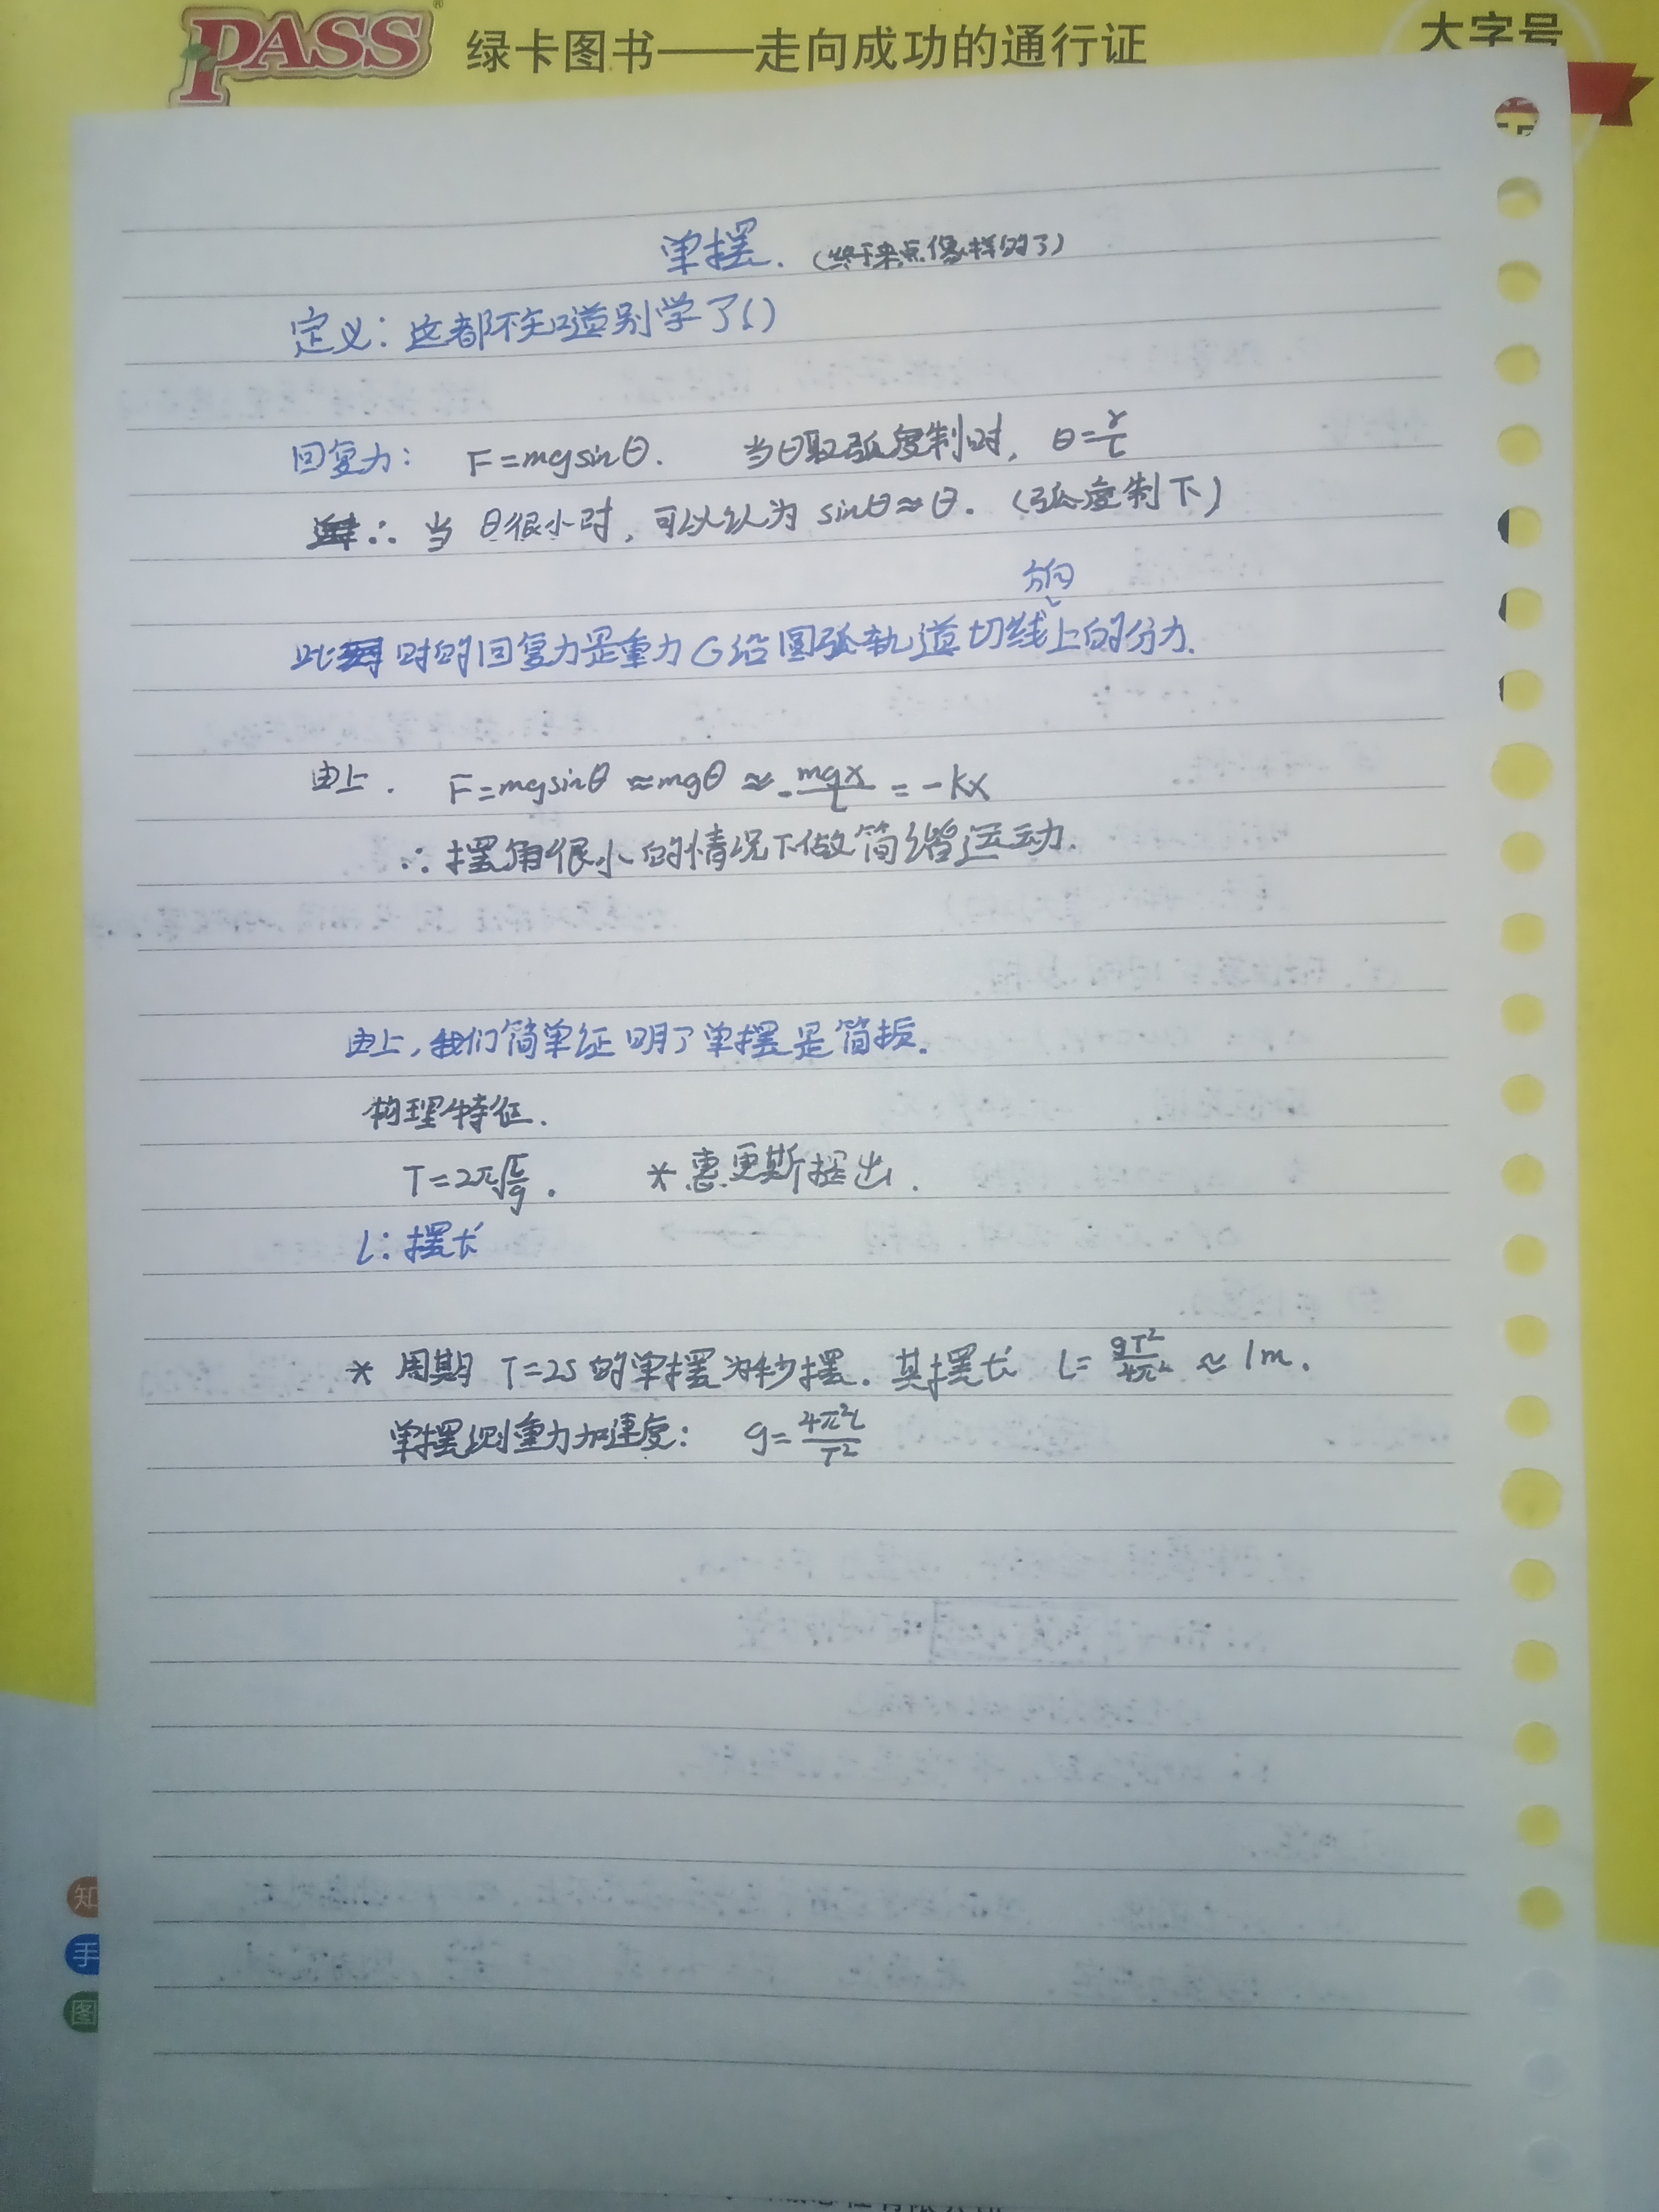 PASS®
绿卡图书——走向成功的通行证
大字号
单摆.（终于来点像样的了）
定义：这都不知道别学了()
回复力： F=mgsinθ. 当θ取弧度制时，θ=r/L
∴ 当 θ很小时，可以认为 sinθ≈θ.（弧度制下）
方向
此时的回复力是重力G沿圆弧轨道切线上的分力.
由上. F=mgsinθ≈mgθ≈-mgx/L=-kx
∴摆角很小的情况下做简谐运动.
由上，我们简单证明了单摆是简振.
物理特征.
T=2π√(L/g). *惠更斯提出.
L：摆长
* 周期 T=2S的单摆为秒摆.其摆长 L=gT²/4π²≈1m.
单摆测重力加速度： g=4π²L/T²
知
手
图